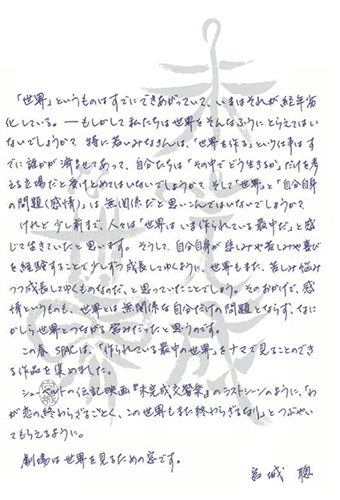 「世界」というものはすでにできあがっていて、いまはそれが経年劣
化している。──もしかして私たちは世界をそんなふうにとらえてはい
ないでしょうか？ 特に若いみなさんは、「世界を作る」という仕事はす
でに誰かが済ませてあって、自分たちは「その中でどう生きるか」だけを考
える立場だと受けとめてはいないでしょうか？ そして「世界」と「自分自身
の問題（感情）」は無関係だと思いこんではいないでしょうか？
けれど少し前まで、人々は「世界はいま作られている最中だ」と感
じて生きていたと思います。そうして、自分自身が悲しみや苦しみや喜び
を経験することで少しずつ成長してゆくように、世界もまた、苦しみ悩み
つつ成長してゆくものなのだ、と思っていたことでしょう。そのおかげで、感
情というものも、世界とは無関係な自分だけの問題とならず、なに
かしら世界とつながる営みだったと思うのです。
この春、SPACは、「作られている最中の世界」をナマで見ることのでき
る作品を集めました。
シューベルトの伝記映画『未完成交響楽』のラストシーンのように、「わ
が恋の終わらざるごとく、この世界もまた終わらざるなり」とつぶやい
てもらえるように。
劇場は世界を見るための窓です。
宮城 聰
未完成